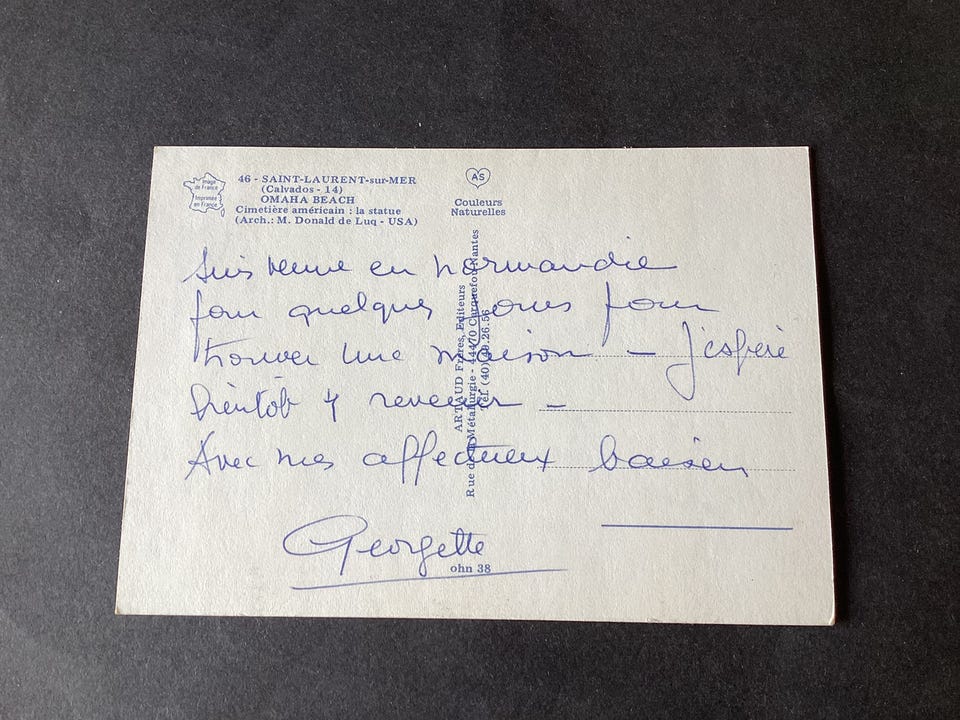 Image
de France
Imprimée
en France
46 - SAINT-LAURENT-sur-MER
(Calvados - 14)
OMAHA BEACH
Cimetière américain : la statue
(Arch.: M. Donald de Luq - USA)
AS
Couleurs
Naturelles
ARTAUD Frères, Editeurs
Rue de la Métallurgie - 44470 Carquefou/Nantes
Tél. (40) 49.26.56
Suis venue en normandie
pour quelques jours pour
trouver une maison - J'espère
bientôt y revenir -
Avec mes affectueux baisers
Georgette
ohn 38